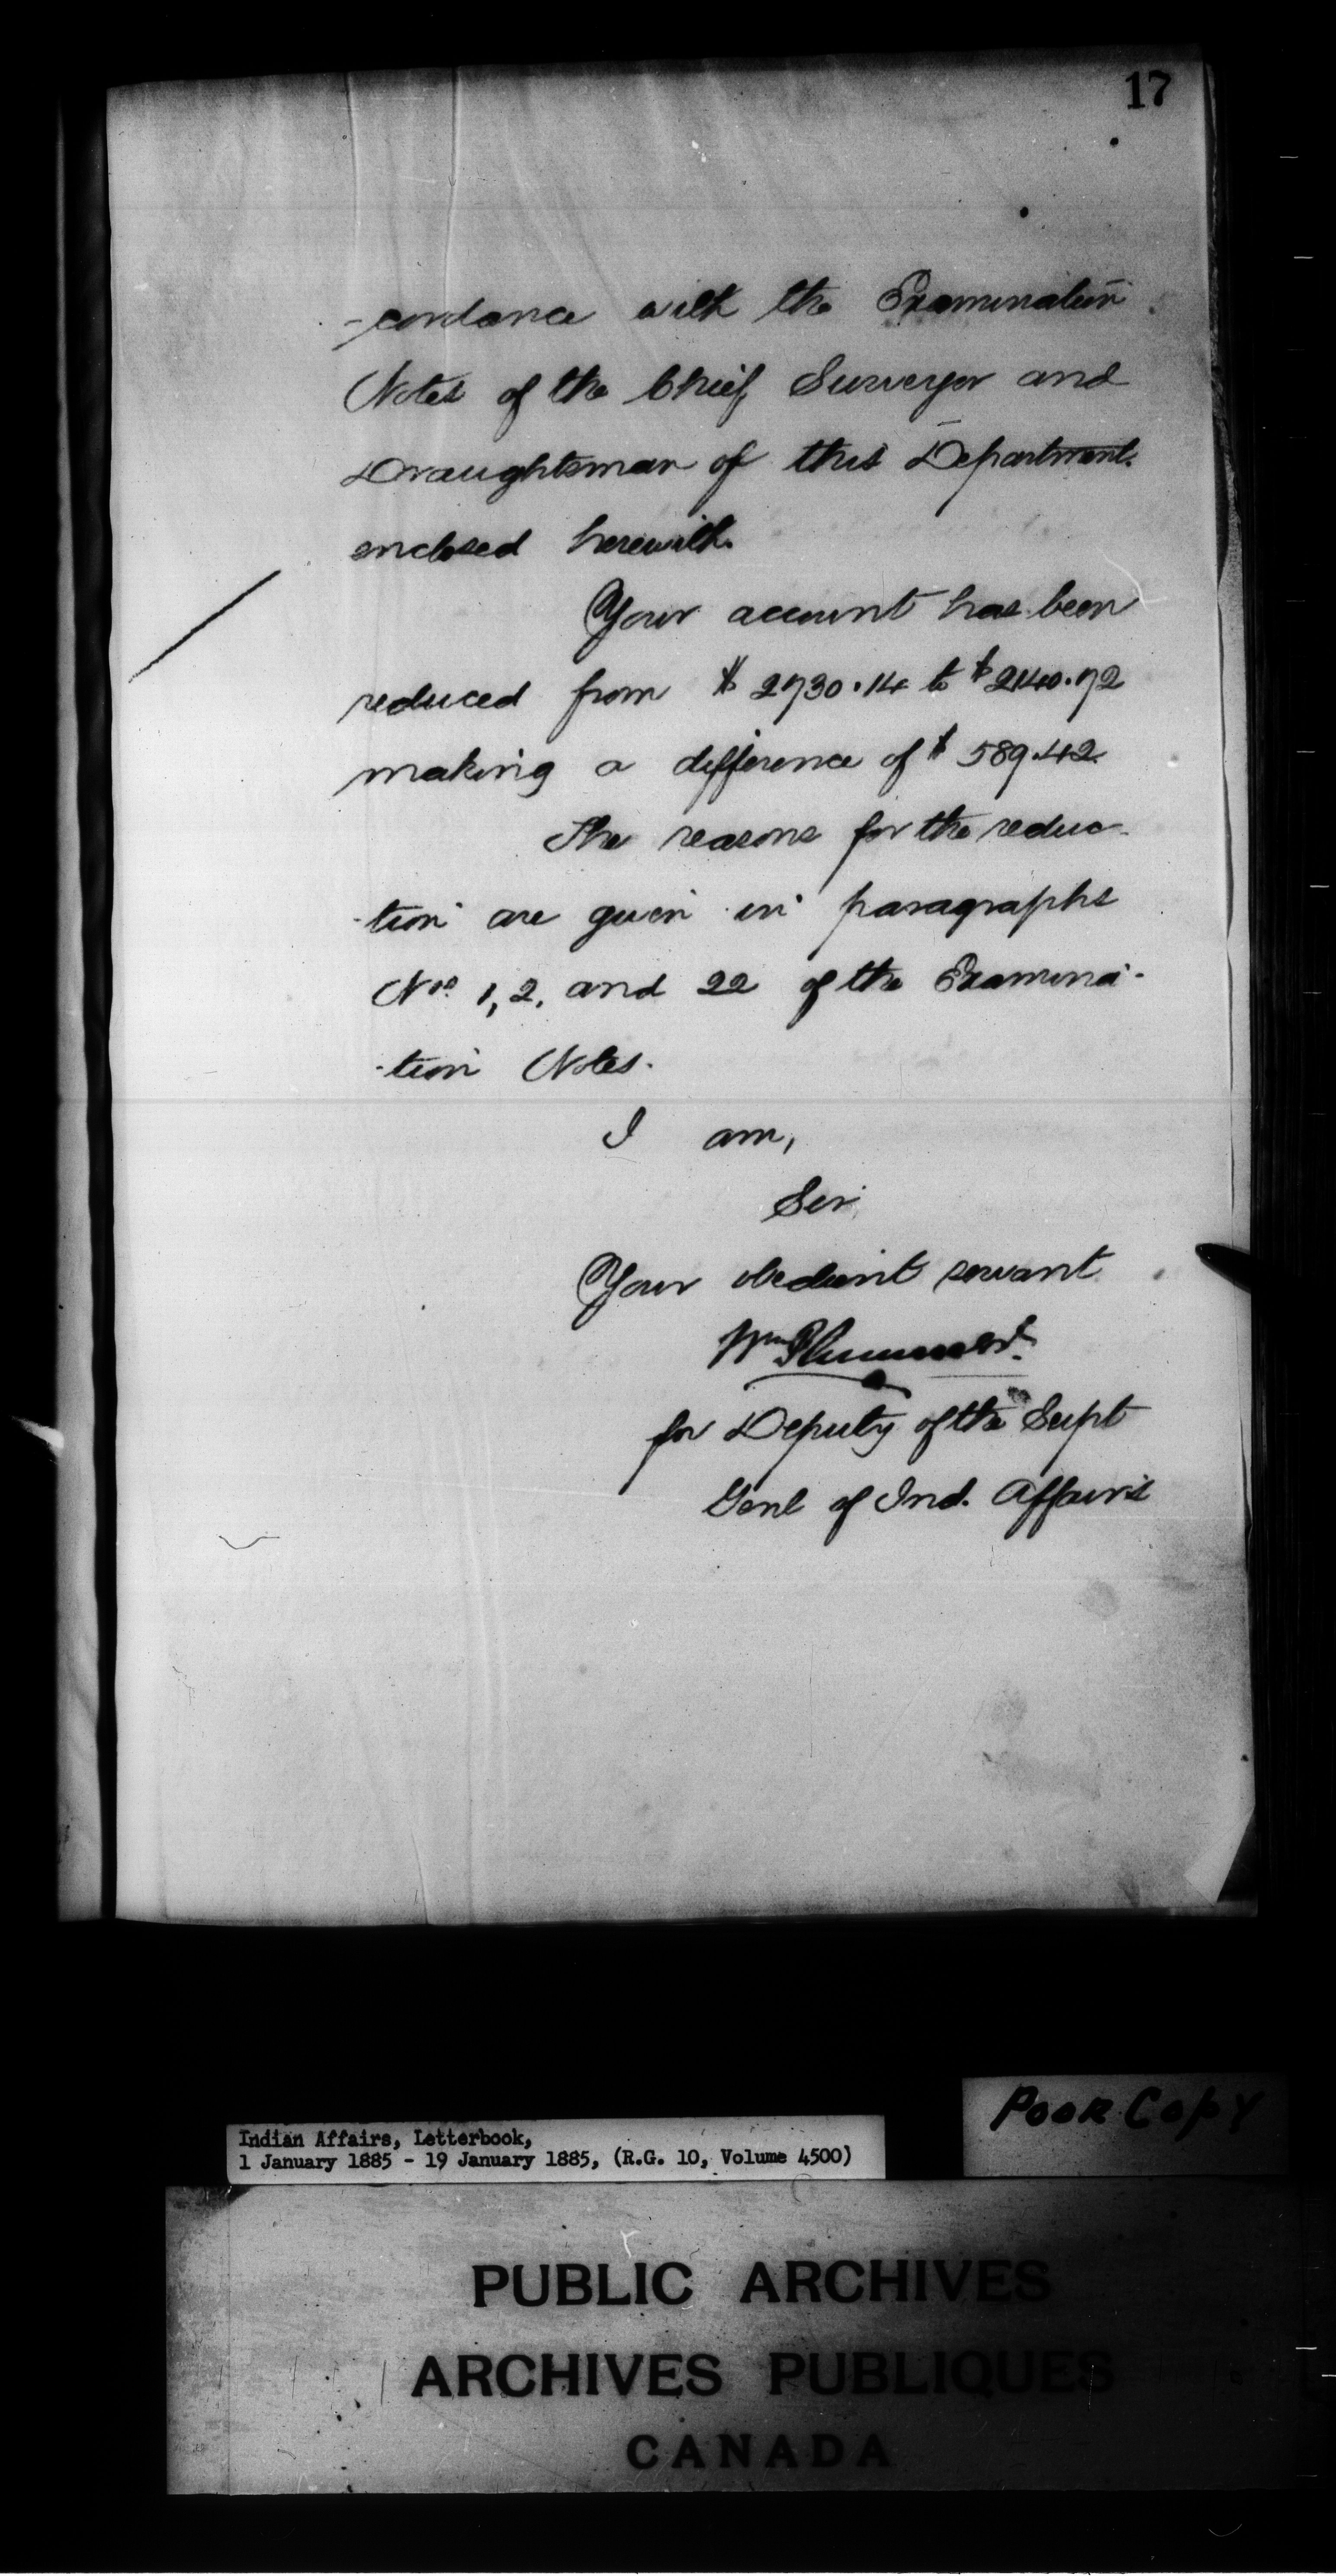 17
-cordance with the Examination
Notes of the Chief Surveyor and
Draughtsman of this Department
enclosed herewith.
Your account has been
reduced from $2730.14 to $2140.72
making a difference of $589.42.
The reasons for the reduc-
-tion are given in paragraphs
Nos. 1, 2, and 22 of the Examina-
-tion Notes.
I am,
Sir,
Your obedient servant
Wm Plummer
for Deputy of the Supt
Genl of Ind. Affairs
Poor Copy
Indian Affairs, Letterbook,
1 January 1885 - 19 January 1885, (R.G. 10, Volume 4500)
PUBLIC ARCHIVES
ARCHIVES PUBLIQUES
CANADA